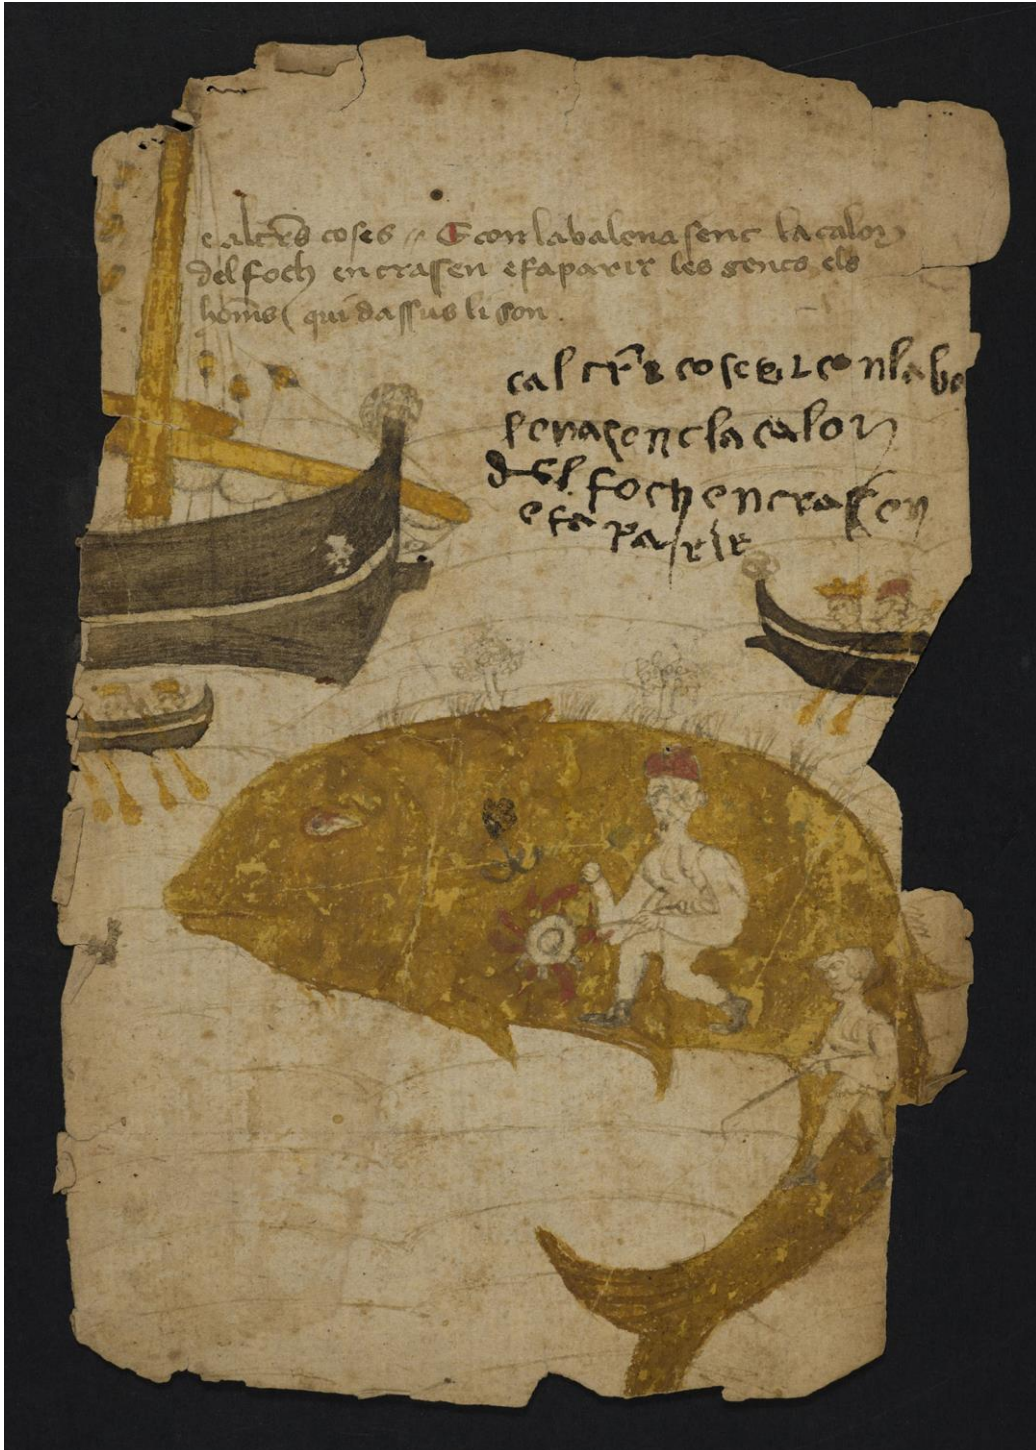 e altrs coses // E con la balena sent la calor
del foch entrassen e fa parir les gents els
homs qui dassus li son .
e al trs coses e con la ba
lena sent la calor
del foch entrassen
e fa parir